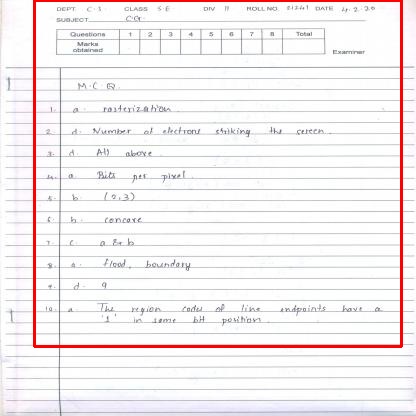 DEPT C.S. CLASS S.E DIV 11 ROLL NO. 21241 DATE 4.2.20
SUBJECT C.G.
Questions 1 2 3 4 5 6 7 8 Total
Marks obtained
Examiner
M.C.Q.
1. a. rasterization.
2. d. Number of electrons striking the screen.
3. d. All above.
4. a. Bits per pixel.
5. b. (0,3)
6. b. concave
7. c. a & b
8. a. flood, boundary
9. d. 9
10. a. The region codes of line endpoints have a
'1' in same bit position.